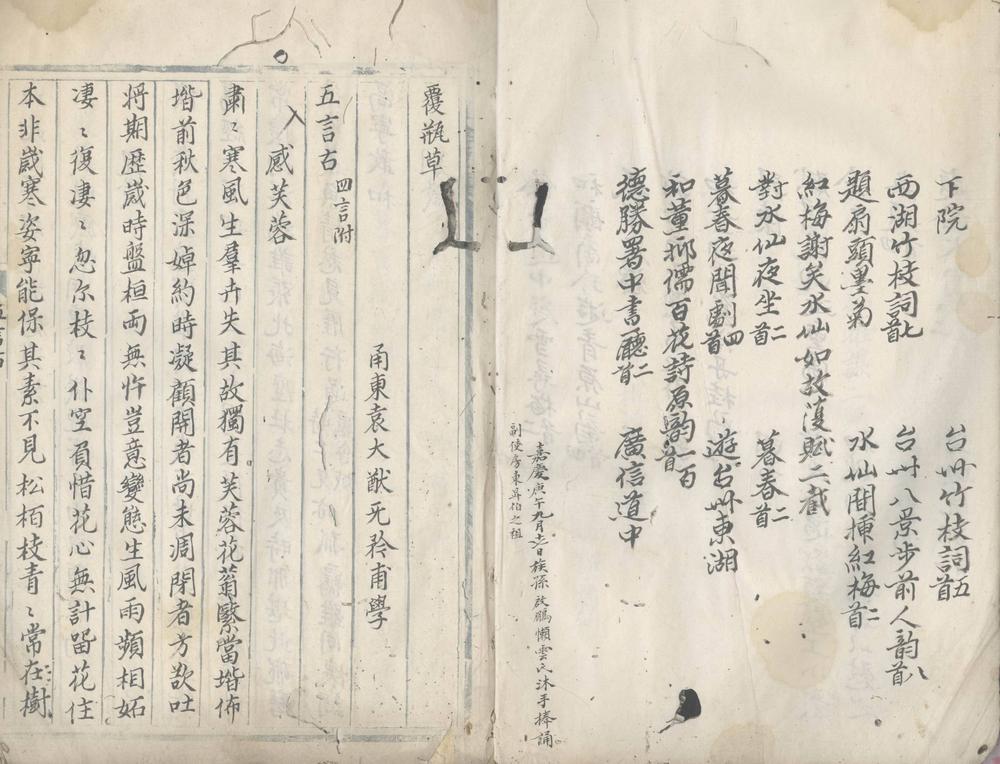 下院 台州竹枝詞五首
西湖竹枝詞七首 台州八景步前人韵八首
題扇頭墨菊 水仙間揷紅梅二首
紅梅謝矣水仙如故復賦二截
對水仙夜坐二首 暮春二首
暮春夜聞劇四首 遊台州東湖
和董抑儒百花詩原韵一百首
德勝署中書廳二首 廣信道中
嘉慶庚午九月 日族孫啟鵬懶雲氏沐手捧誦
副使房東昇伯之祖
覆瓶草
甬東袁大猷旡矜甫學
五言古 四言附
感芙蓉
肅〻寒風生羣卉失其故獨有芙蓉花蓊翳當堦佈
堦前秋色深婥約時凝顧開者尚未凋閉者方欲吐
將期歴歲時盤桓兩無忤豈意變態生風雨頻相妬
淒〻復淒〻忽尔枝〻仆空頁惜花心無計畱花住
本非歲寒姿寜能保其素不見松栢枝青〻常在樹
五言古